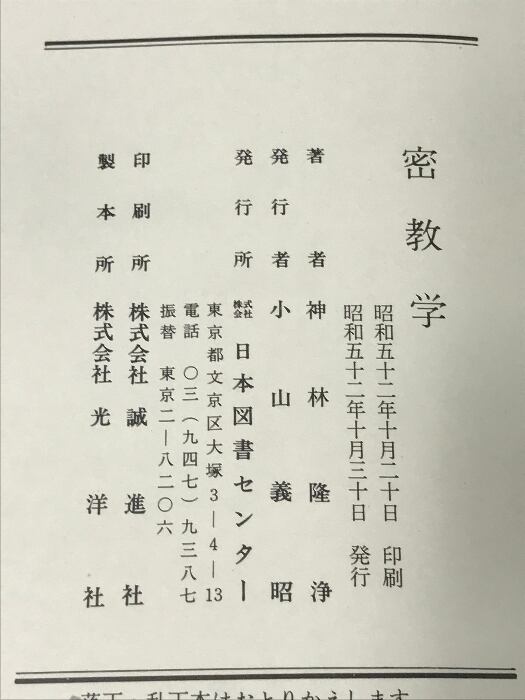 密教学
昭和五十二年十月二十日 印刷
昭和五十二年十月三十日 発行
著者 神林隆浄
発行者 小山義昭
発行所 株式会社 日本図書センター
東京都文京区大塚3―4―13
電話 〇三(九四七)九三八七
振替 東京二―八二〇六
印刷所 株式会社誠進社
製本所 株式会社光洋社
落丁・乱丁本はおとりかえします